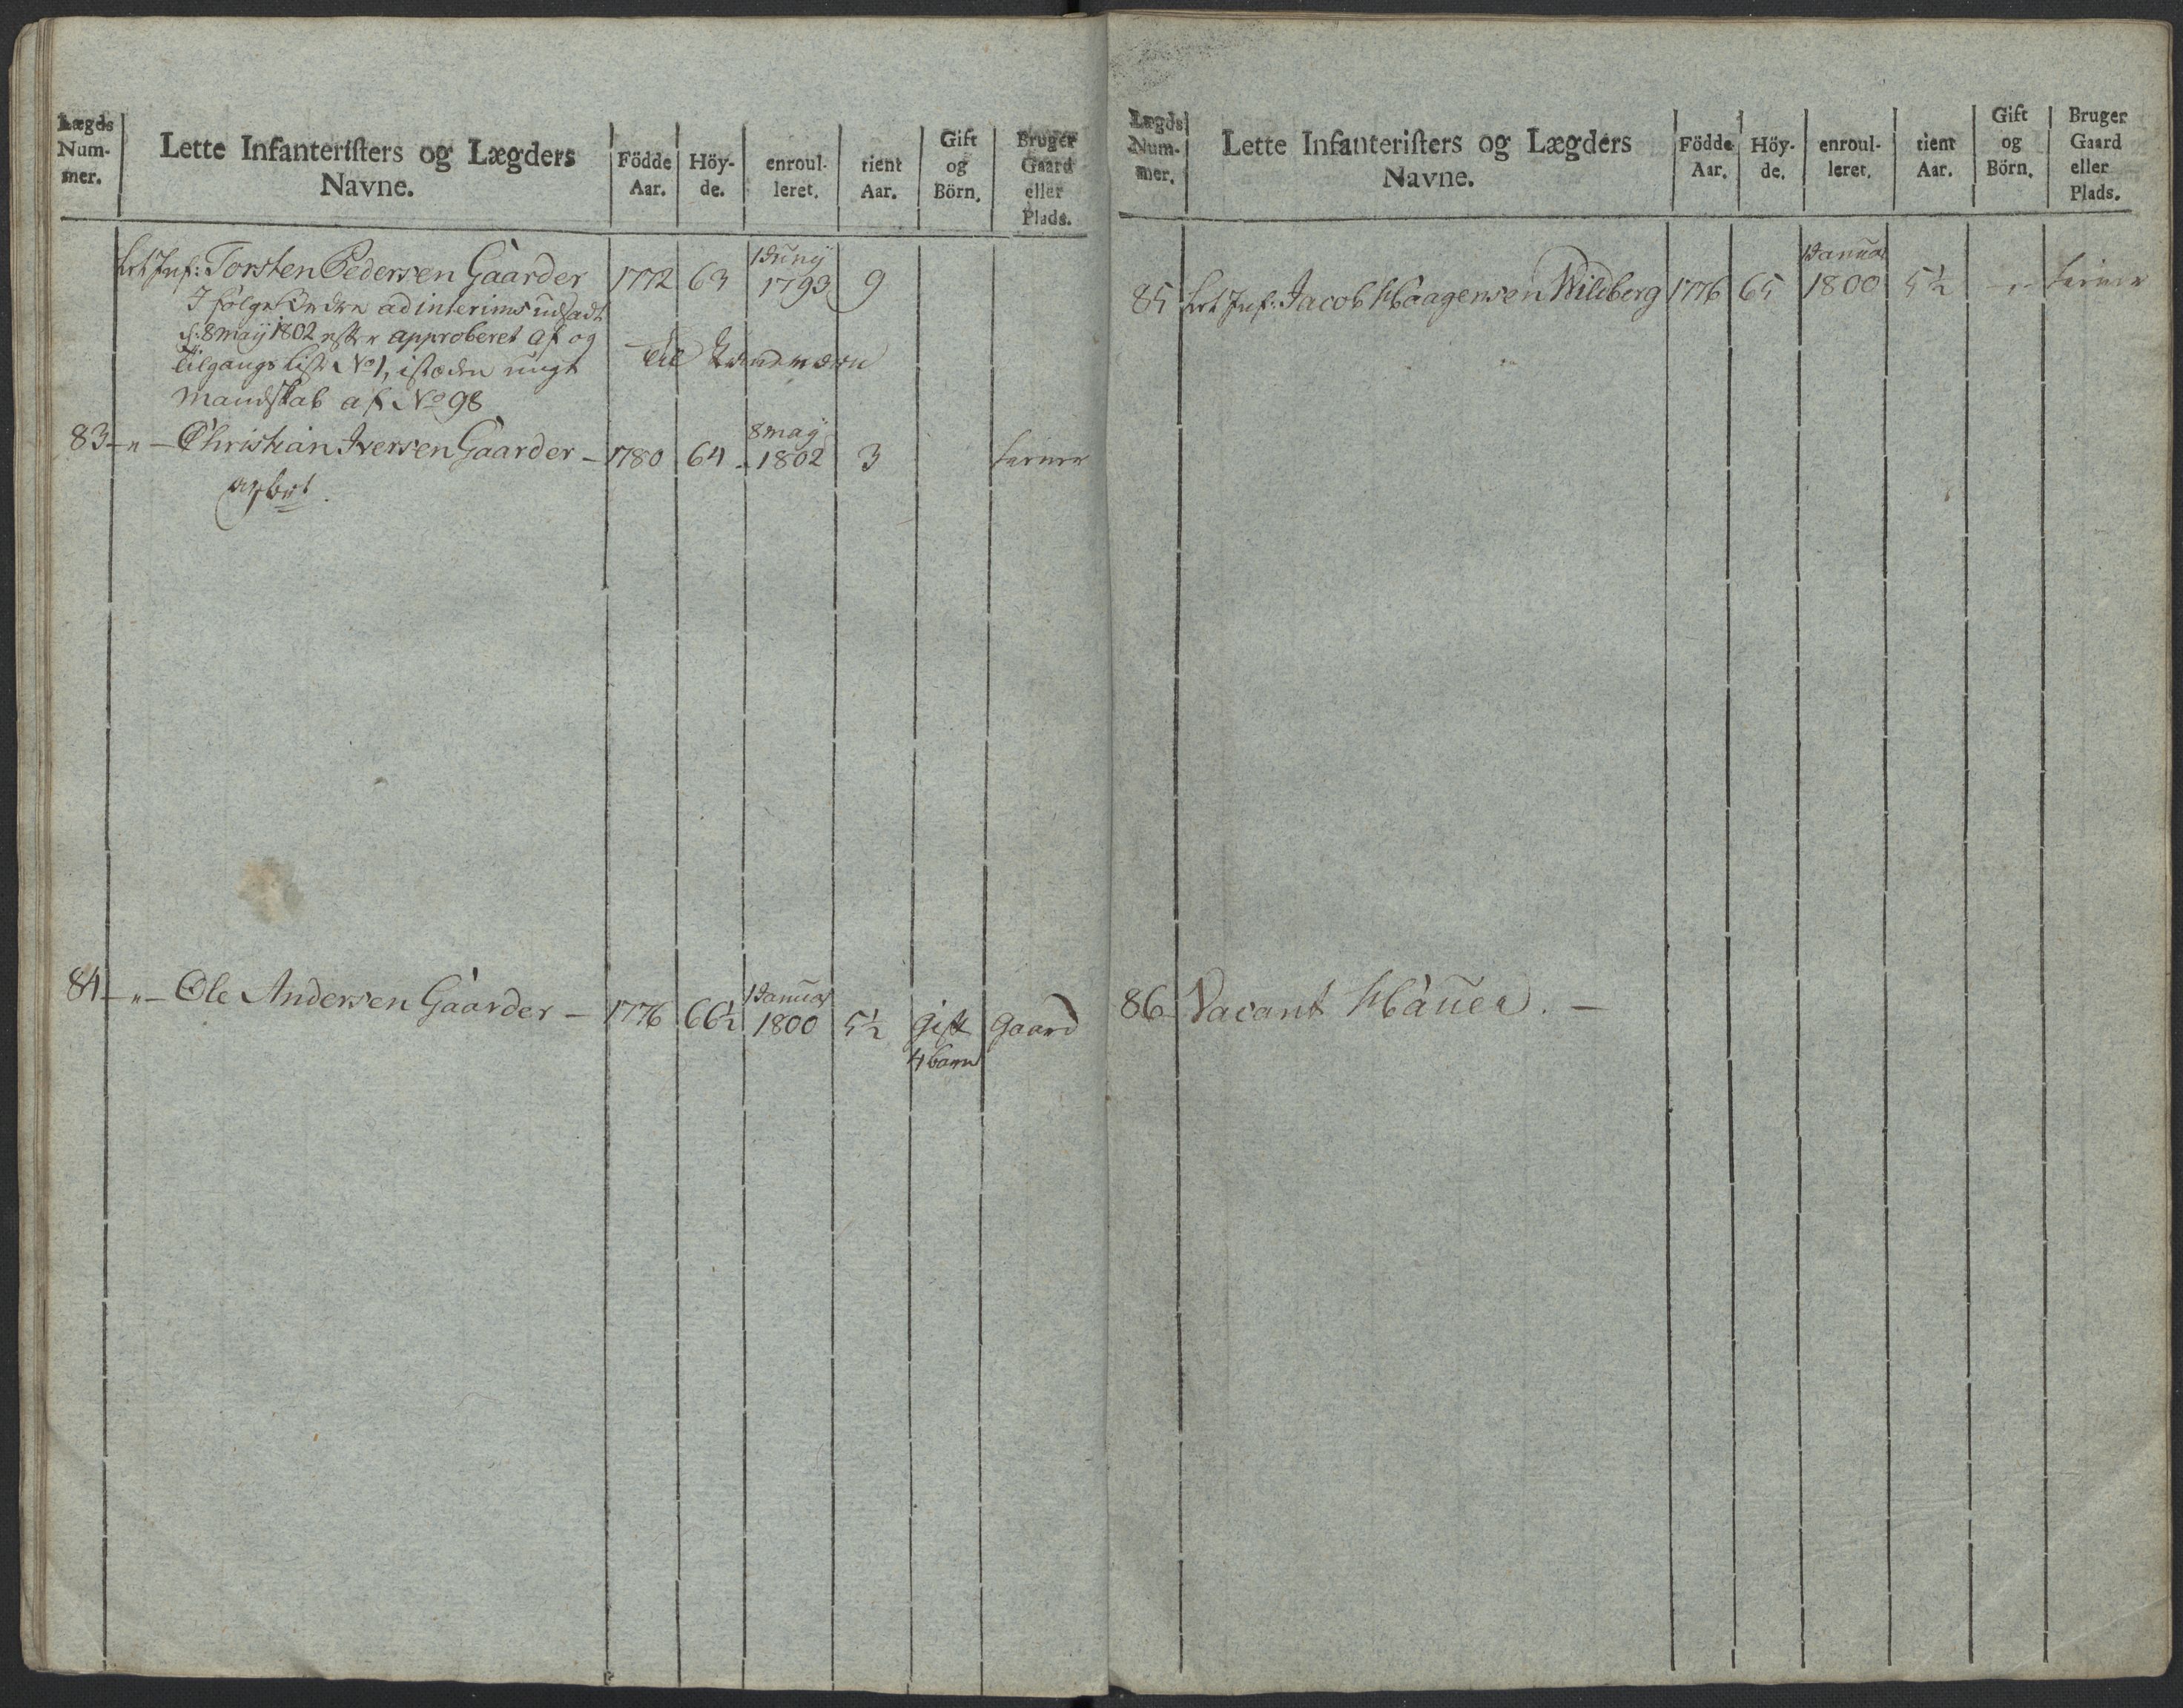 Lægds Num- mer.
Lette Infanteriſters og Lægders Navne.
Födde Aar.
Höy- de.
enroul- leret.
tient Aar.
Gift og Börn.
Bruger Gaard eller Plads.
Let Inf: Torsten Pedersen Gaarder 1772 63 1 Juny 1793 9
I følge Ordre ad interims udsadt
d: 8 maÿ 1802 efter approberet af og
tilgangs Liste No 1, isteden ungt
mandskab af No 98
til Landværn
83 - " - Christian Iversen Gaarder - 1780 64 8 maÿ 1802 3
84 - " - Ole Andersen Gaarder - 1776 66½ 1 Januar 1800 5½ Gift 4 barn Gaard
Lægds Num- mer.
Lette Infanteriſters og Lægders Navne.
Födde Aar.
Höy- de.
enroul- leret.
tient Aar.
Gift og Börn.
Bruger Gaard eller Plads.
85 Let Inf: Jacob Haagensen Wildberg 1776 65 1 Januar 1800 5½ - " -
86 - Vacant Hauer. -